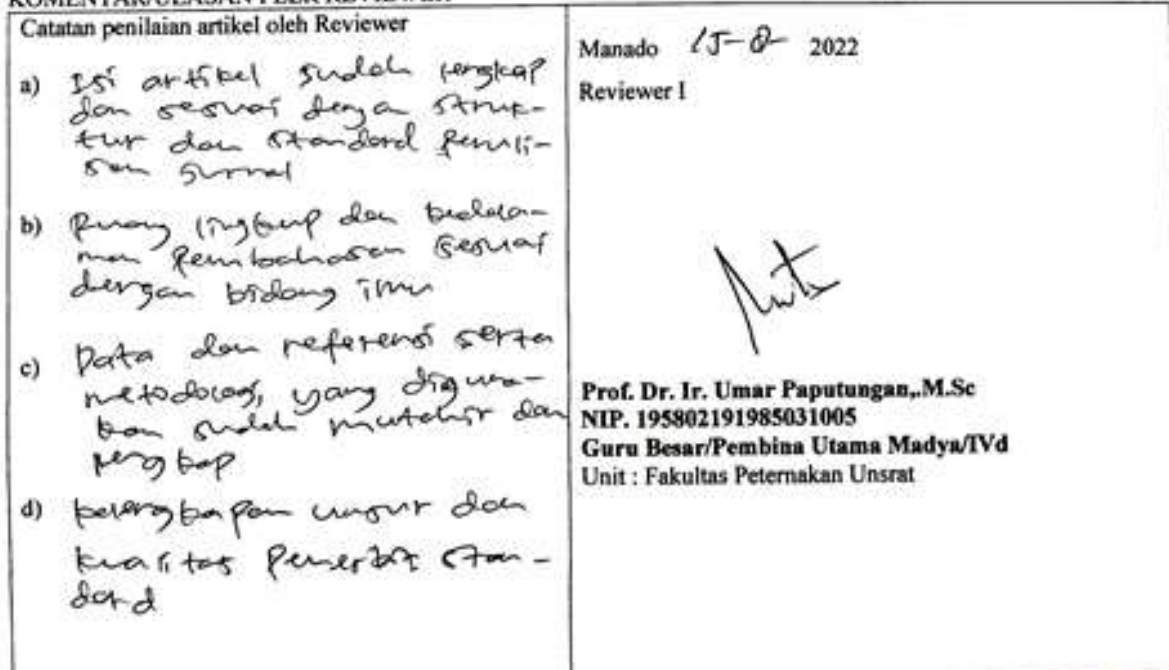 KOMENTAR/ULASAN PEER REVIEWER
Catatan penilaian artikel oleh Reviewer
a) Isi artikel sudah lengkap
dan sesuai dengan struk-
tur dan standard penuli-
san jurnal
b) Ruang lingkup dan kedala-
man pembahasan sesuai
dengan bidang ilmu
c) Data dan referensi serta
metodologi, yang diguna-
kan sudah mutahir dan
lengkap
d) kelengkapan unsur dan
kualitas penerbit stan-
dard
Manado 15- 2022
Reviewer I
Prof. Dr. Ir. Umar Paputungan,.M.Sc
NIP. 195802191985031005
Guru Besar/Pembina Utama Madya/IVd
Unit : Fakultas Peternakan Unsrat